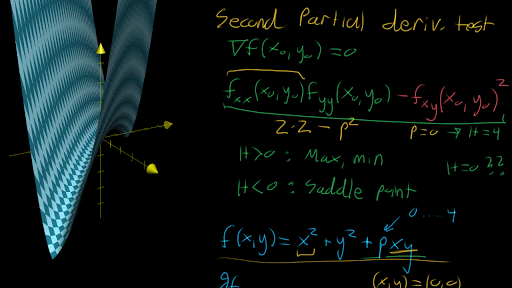 Second Partial deriv. test
∇f(x₀,y₀)=0
fₓₓ(x₀,y₀)f_yy(x₀,y₀) - f_xy(x₀,y₀)²
2·2 - p² p=0 → H=4
H>0 : Max, min H=0 ??
H<0 : Saddle point
0 ..... 4
f(x,y) = x² + y² + pxy
(x,y) = (0,0)
∂f